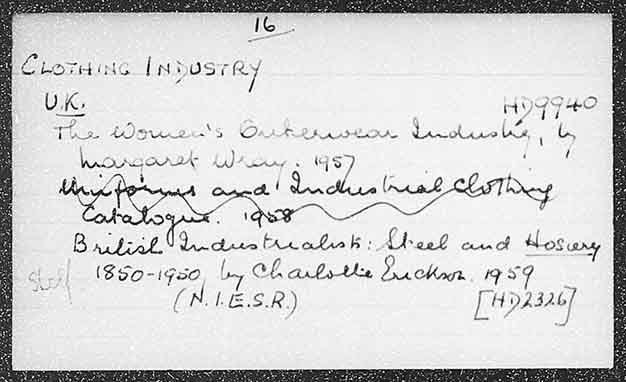 16
CLOTHING INDUSTRY
U.K. HD9940
The Women's Outerwear Industry, by
Margaret Wray. 1957
Uniforms and Industrial Clothing
Catalogue. 1958
British Industrialists: Steel and Hosiery
1850-1950, by Charlotte Erickson. 1959
(N.I.E.S.R.) [HD2326]